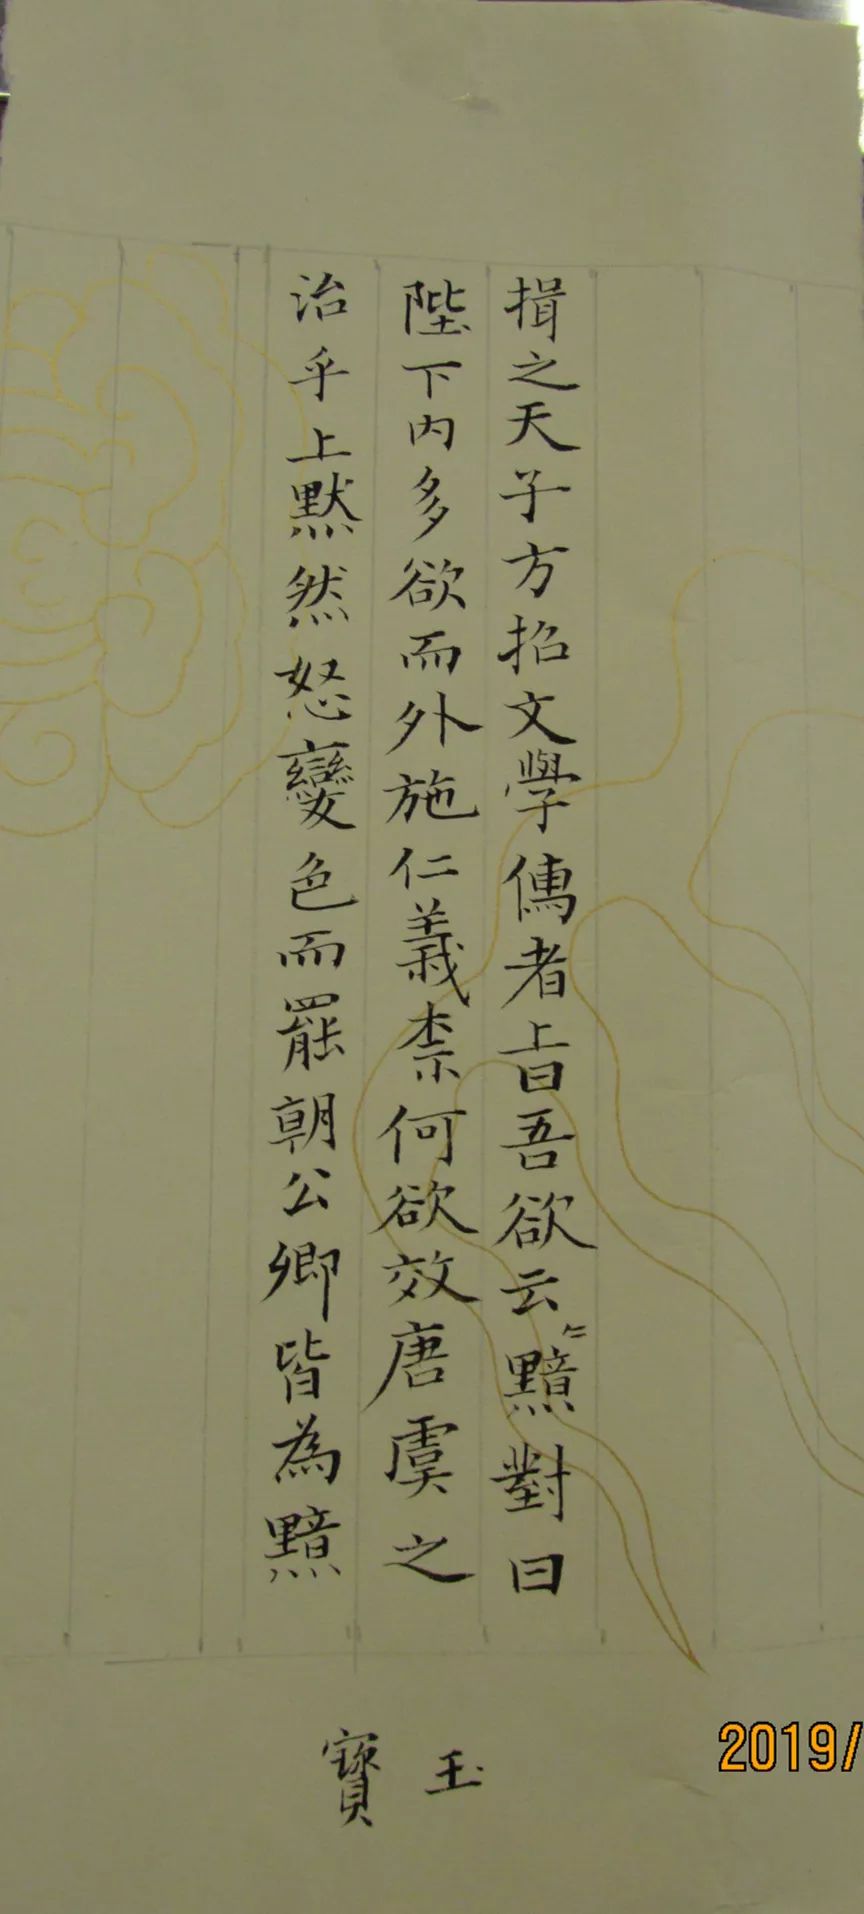 揖之天子方招文學儁者上曰吾欲云〻黯對曰
陛下内多欲而外施仁義柰何欲效唐虞之
治乎上黙然怒變色而罷朝公卿皆為黯
玉
寶
2019/